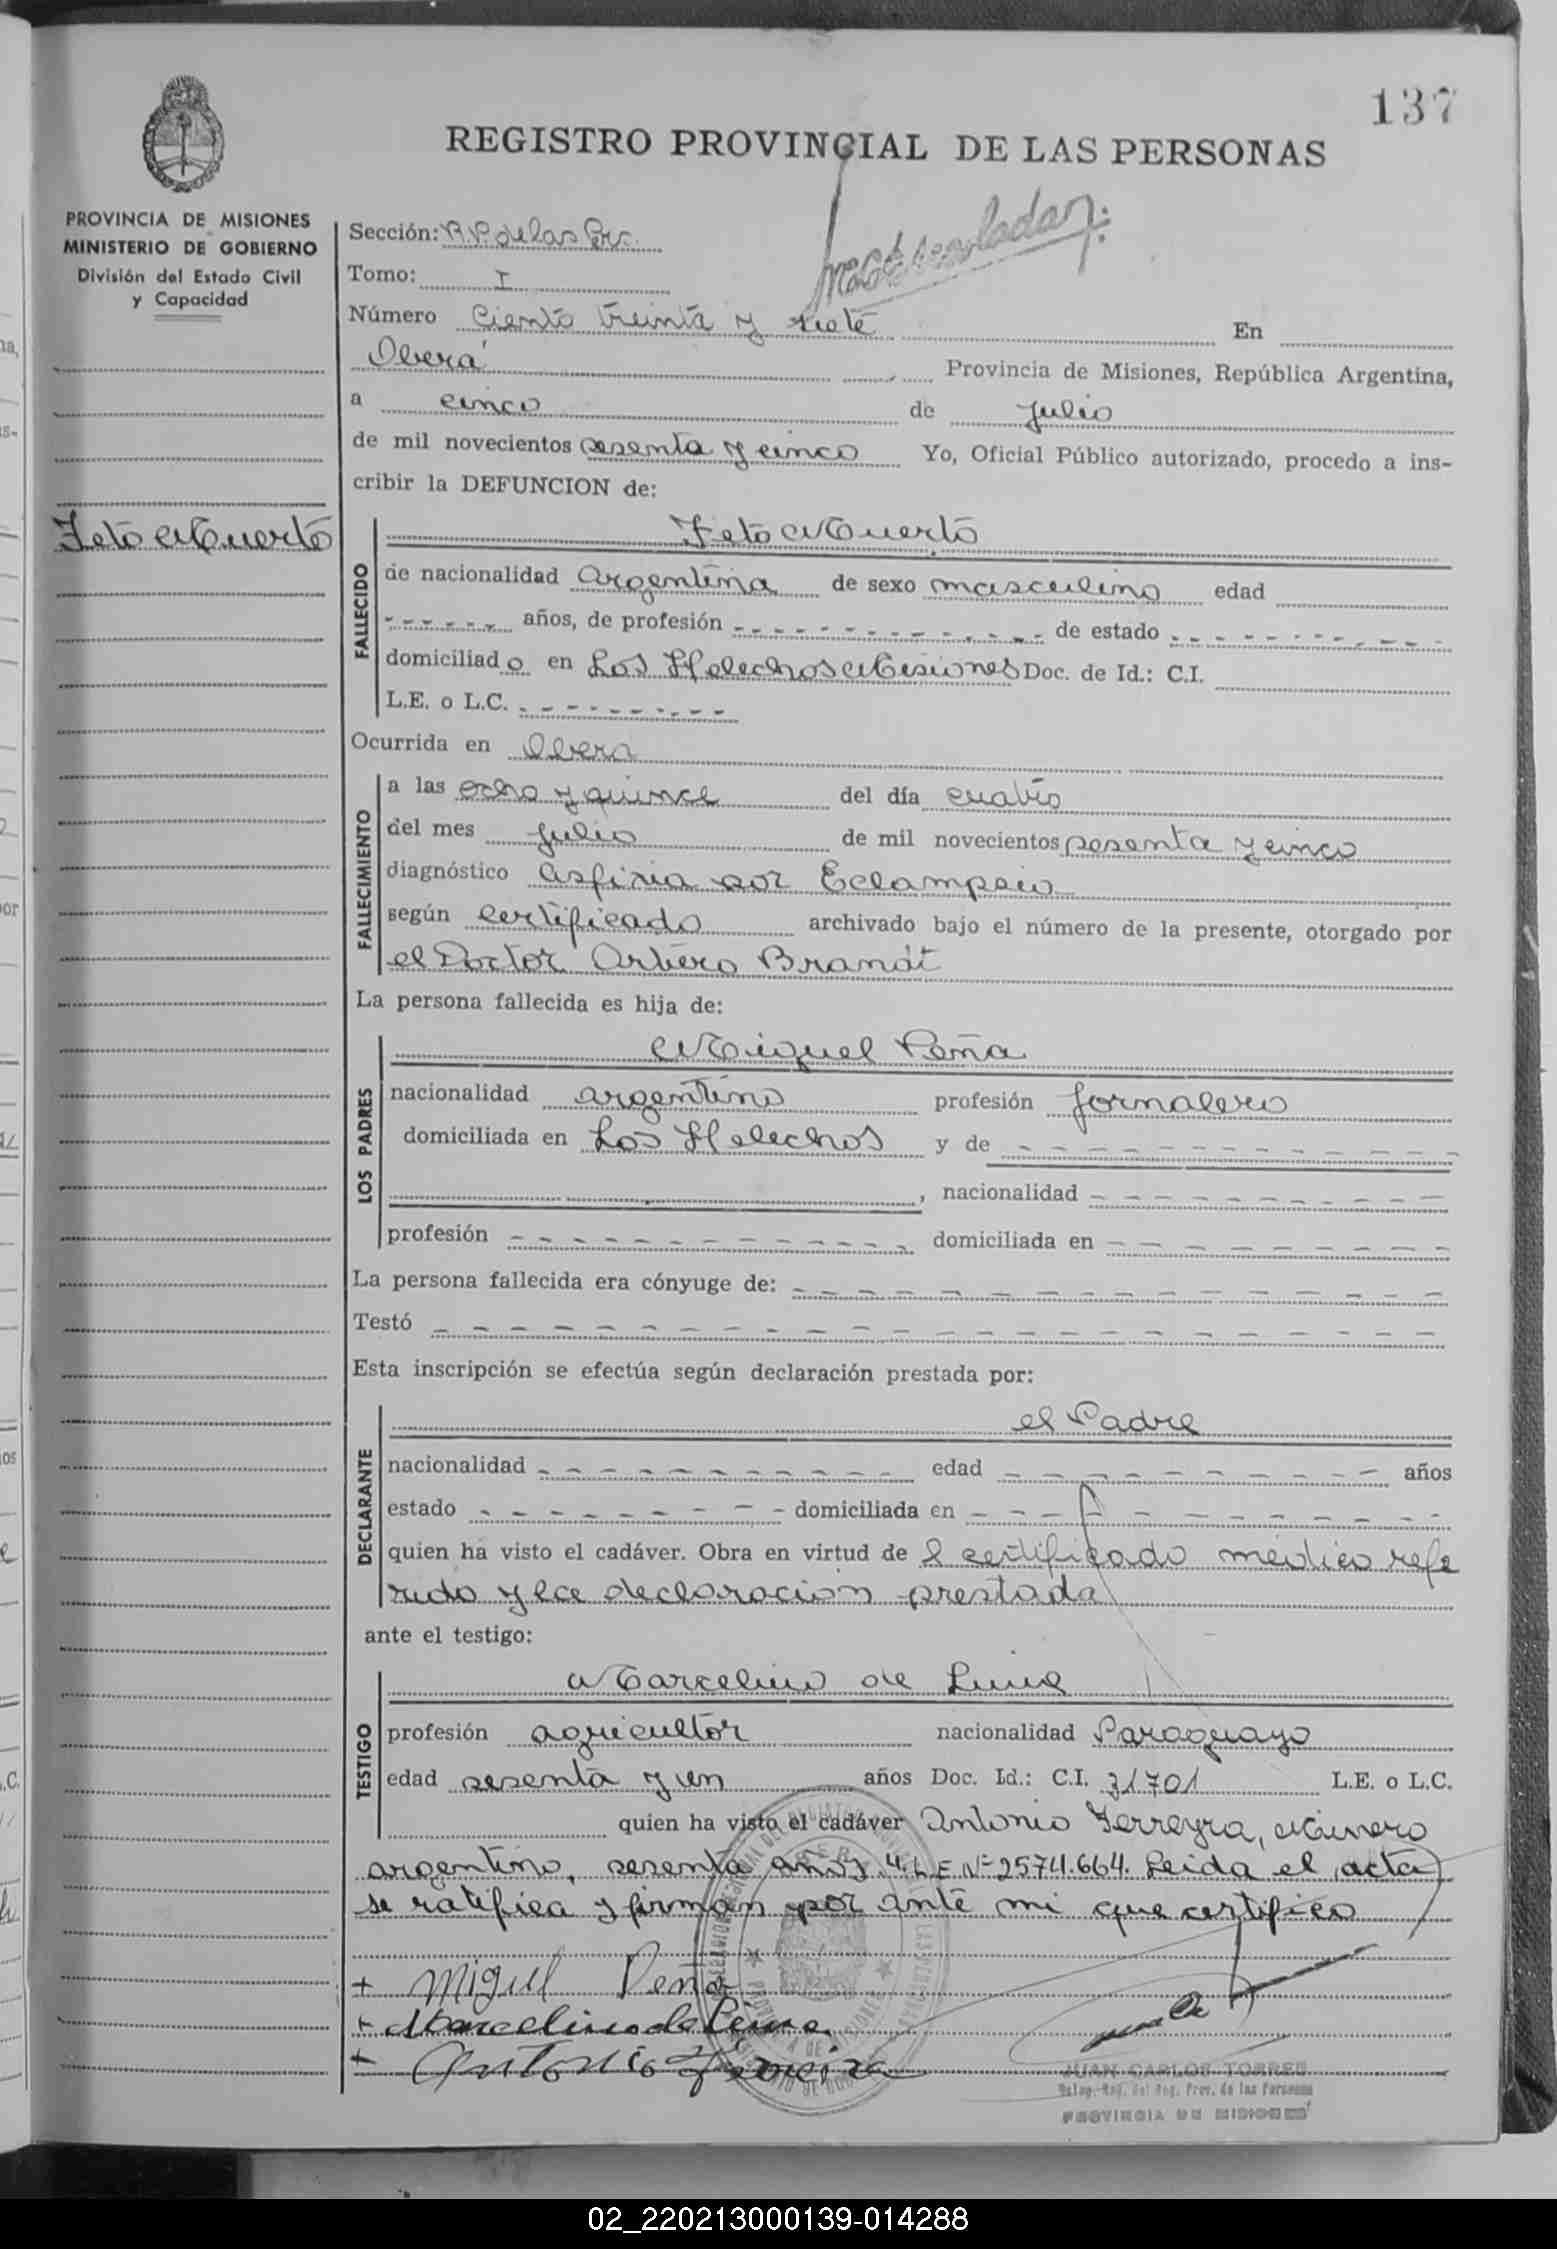 137
REGISTRO PROVINCIAL DE LAS PERSONAS
PROVINCIA DE MISIONES
MINISTERIO DE GOBIERNO
División del Estado Civil
y Capacidad
Sección: R.P. de las Per.
Tomo: I
Número Ciento treinta y siete En
Oberá Provincia de Misiones, República Argentina,
a cinco de Julio
de mil novecientos sesenta y cinco Yo, Oficial Público autorizado, procedo a ins-
cribir la DEFUNCION de:
Feto Muerto
FALLECIDO
Feto Muerto
de nacionalidad Argentina de sexo masculino edad
años, de profesión de estado
domiciliado en Los Helechos Misiones Doc. de Id.: C.I.
L.E. o L.C.
Ocurrida en Obera
FALLECIMIENTO
a las ocho y quince del día cuatro
del mes Julio de mil novecientos sesenta y cinco
diagnóstico Asfixia por Eclampsia
según certificado archivado bajo el número de la presente, otorgado por
el Doctor Arturo Brandt
La persona fallecida es hija de:
LOS PADRES
Miguel Peña
nacionalidad argentino profesión Jornalero
domiciliada en Los Helechos y de
, nacionalidad
profesión domiciliada en
La persona fallecida era cónyuge de:
Testó
Esta inscripción se efectúa según declaración prestada por:
DECLARANTE
el Padre
nacionalidad edad años
estado domiciliada en
quien ha visto el cadáver. Obra en virtud de l certificado médico refe
rido y la declaración prestada
ante el testigo:
TESTIGO
Marcelino de Lima
profesión agricultor nacionalidad Paraguayo
edad sesenta y un años Doc. Id.: C.I. 31701 L.E. o L.C.
quien ha visto el cadáver Antonio Ferreyra, Minero
argentino, sesenta años, L.E. Nº 2574.664. Leida el acta
se ratifica y firman por ante mi que certifico
+ Miguel Peña
+ Marcelino de Lima
+ Antonio
JUAN CARLOS TORRES
Deleg. Reg. del Reg. Prov. de las Personas
PROVINCIA DE MISIONES
02_220213000139-014288